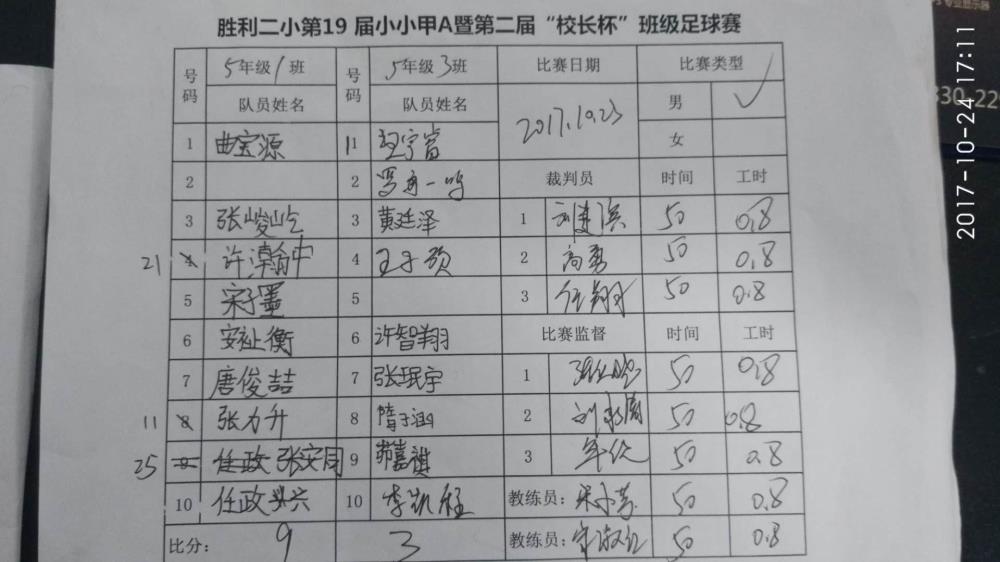 胜利二小第19 届小小甲A暨第二届“校长杯”班级足球赛
号码 5年级1班 号码 5年级3班 比赛日期 比赛类型
队员姓名 队员姓名 2017.10.23 男 ✓
女
1 曲宝源 11 1 王宇富
2 2 一鸣 裁判员 时间 工时
3 张峻屹 3 黄廷泽 1 50 0.8
21 4 许瀚中 4 王子硕 2 高勇 50 0.8
5 宋子墨 5 3 任翔 50 0.8
6 安祉衡 6 许智翔 比赛监督 时间 工时
7 唐俊喆 7 张珉宇 1 50 0.8
11 8 张力升 8 隋子涵 2 50 0.8
25 9 任政 张安同 9 嘉祺 3 50 0.8
10 任政兴 10 李凯程 教练员: 50 0.8
比分: 9 3 教练员: 50 0.8
2017-10-24 17:11